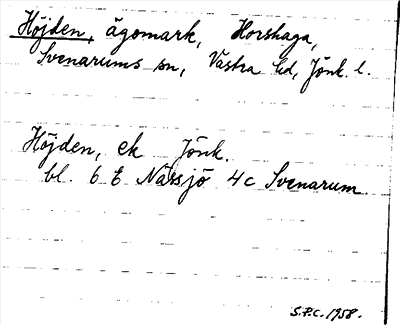 Höjden, ägomark, Horshaga,
Svenarums sn, Västra hd, Jönk. l.
Höjden, ek Jönk.
bl. 6 E Nässjö 4c Svenarum
S.P.C. 1958.